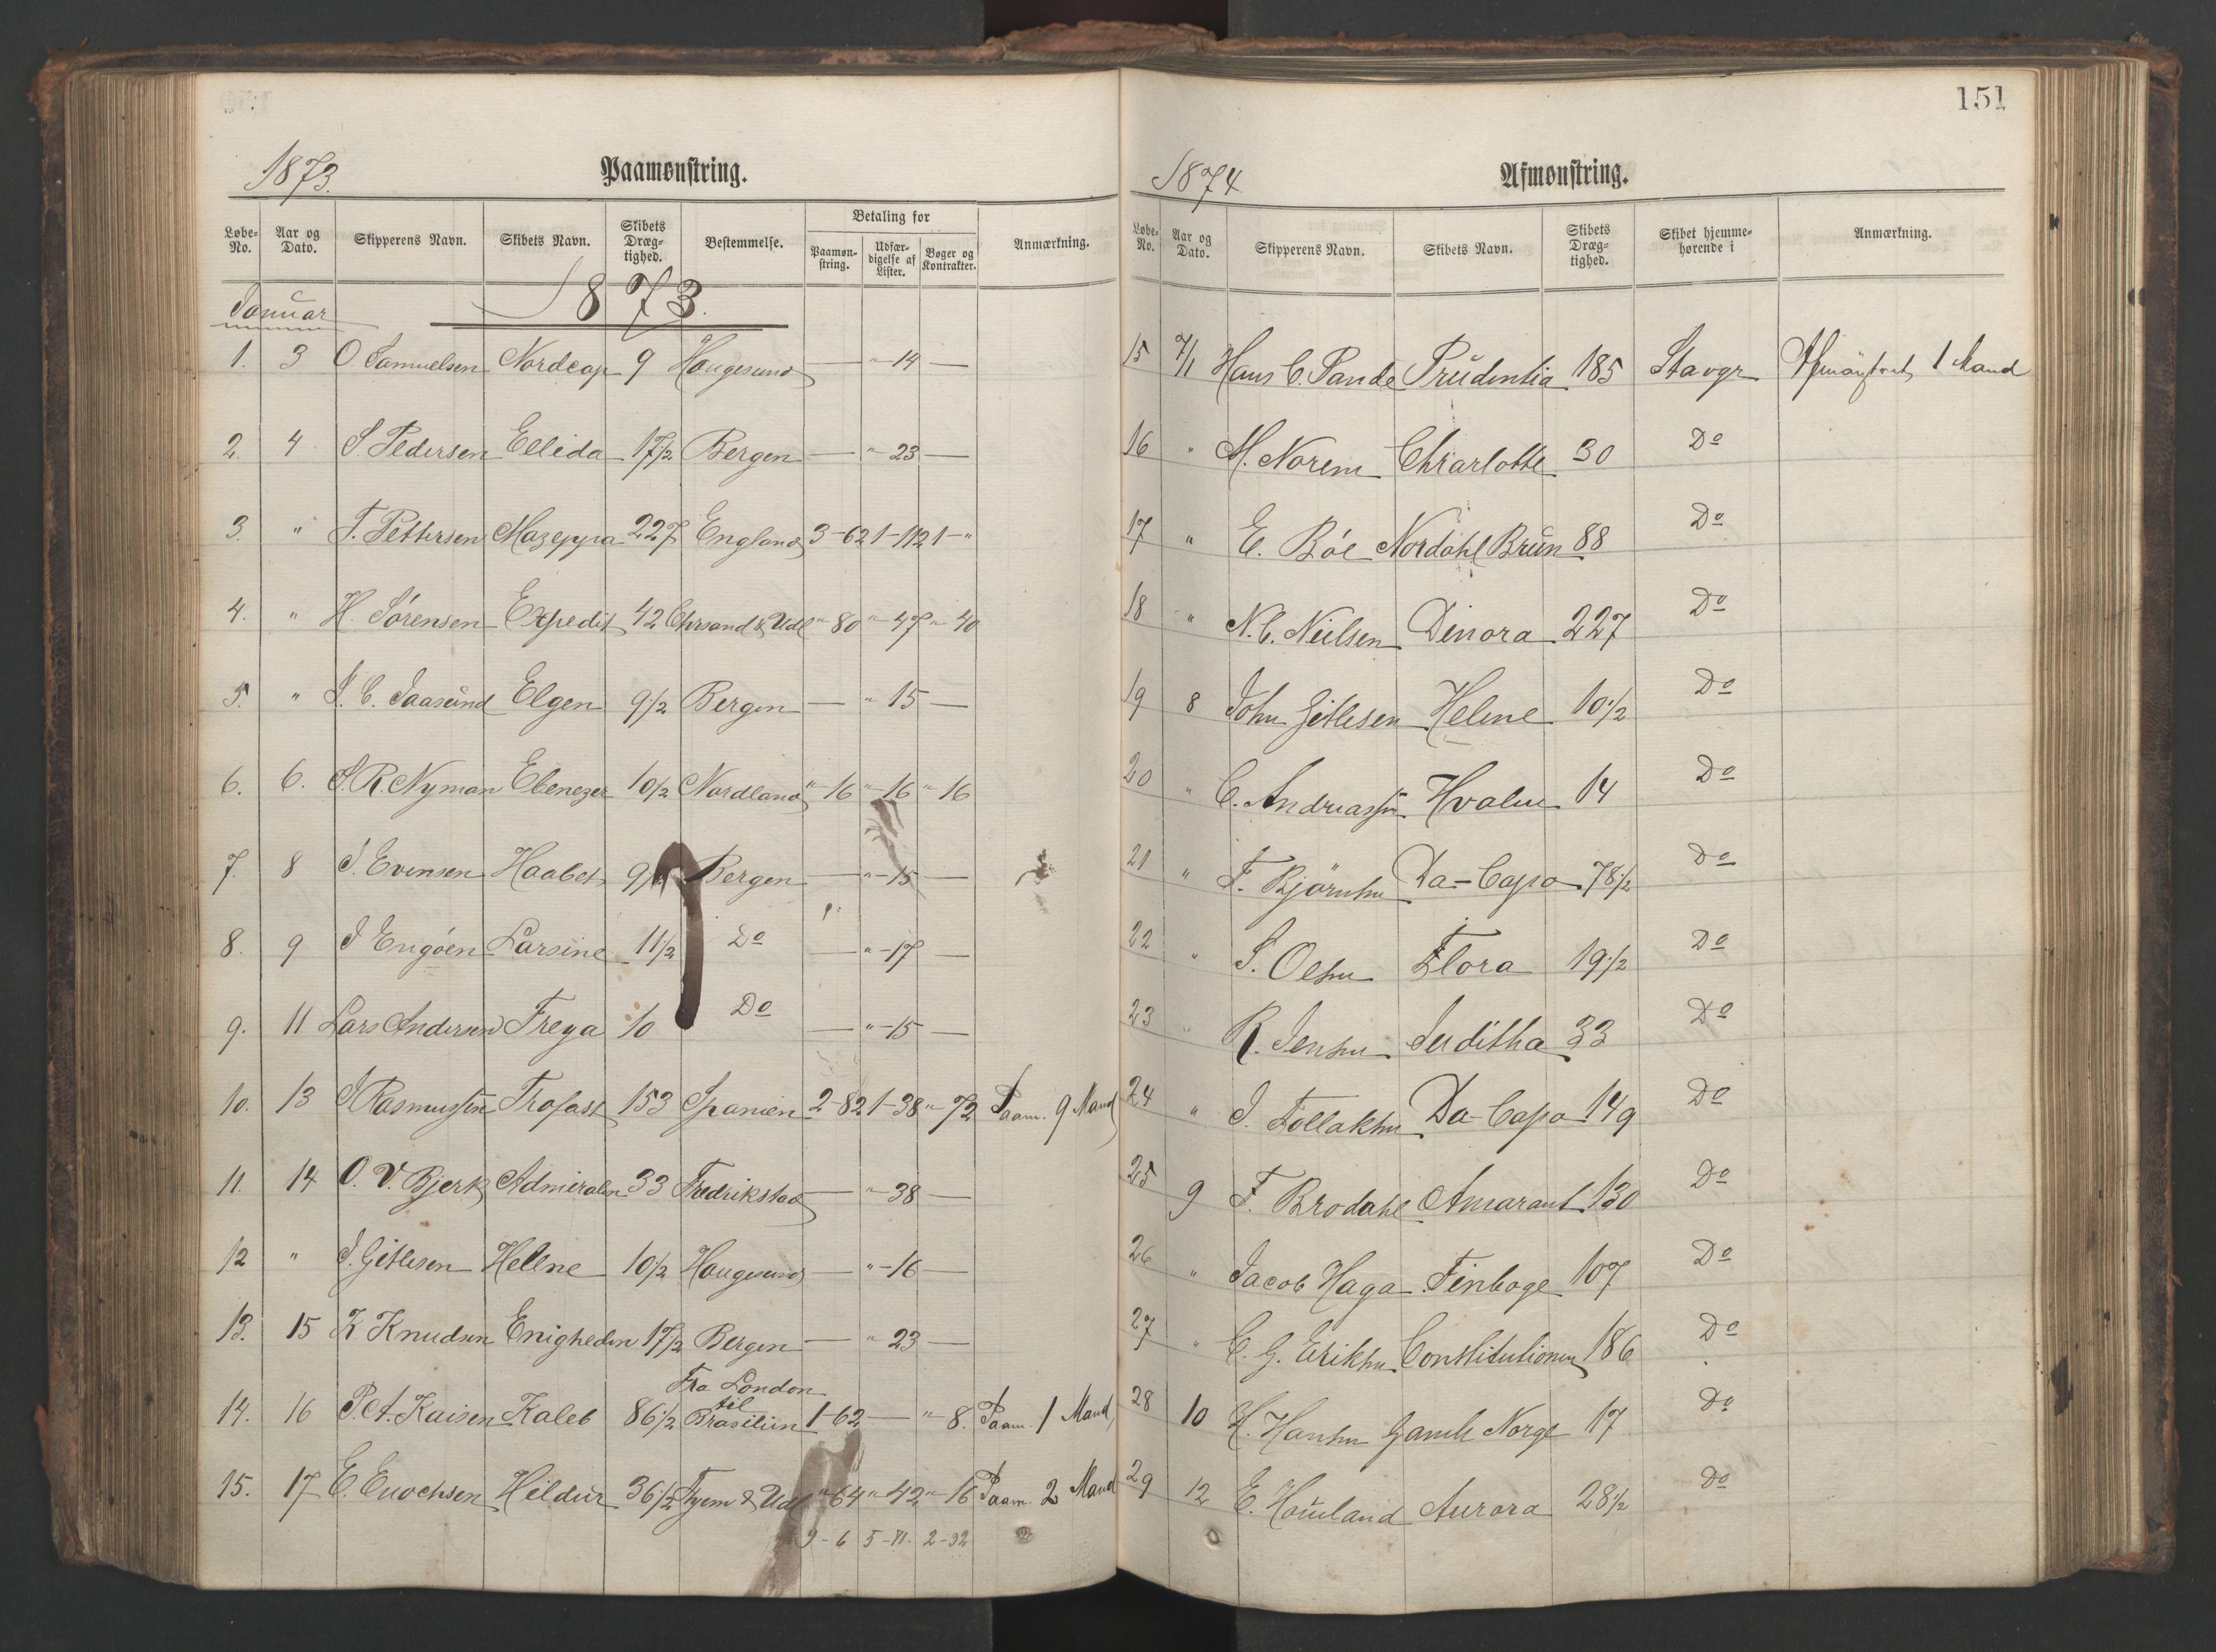 1873. Paamønstring.
Løbe-No. Aar og Dato. Skipperens Navn. Skibets Navn. Skibets Dræg-tighed. Bestemmelse. Betaling for Paamøn-string. Udfær-digelse af Lister. Bøger og Kontrakter. Anmærkning.
1873.
Januar
1. 3 O Samuelsen Nordcap 9 Haugesund — " 14 —
2. 4 S Pedersen Ellida 17 1/2 Bergen — " 23 —
3. " T. Pettersen Mazeppa 227 England 3-62 1-112 1-"
4. " H. Sørensen Expedit 42 Chrsand & Udl "-80 "-47 "-40
5. " Elgen 9 1/2 Bergen — " 15 —
6. 6. S. R. Nyman Ebenezer 10 1/2 Nordland "-16 "-16 "-16
7. 8 S. Evensen Haabet 9 Bergen — "-15 —
8. 9 J Engøen Larsine 11 1/2 Do — "-17 —
9. 11 Lars Andersen Freya 10 Do — "-15 —
10. 13 J Rasmussen Trofast 153 Spanien 2-82 1-38 "-72 Paam. 9 Mand
11. 14 O. V. Bjerk Admiralen 33 Fredrikstad — "-38 —
12 " J. Gitlesen Helene 10 1/2 Haugesund — "-16 —
13. 15 K Knudsen Enigheden 17 1/2 Bergen — " 23 —
Fra London
til
14. 16 P. A. Kaisen Kaleb 86 1/2 Brasilien 1-62 — "-8. Paam. 1 Mand
15. 17 E. Enochsen Hildur 36 1/2 Hjem & Udl "-64 "-42 "-16 Paam. 2 Mand
9-6 5-11. 2-32
151
1874 Afmønstring.
Løbe-No. Aar og Dato. Skipperens Navn. Skibets Navn. Skibets Dræg-tighed. Skibet hjemme-hørende i Anmærkning.
15 7/1 Hans C. Pande Prudentia 185 Stavgr Afmønstret 1 Mand
16 " M. Norem Charlotte 30 Do
17 " E. Bøe Nordahl Brun 88 Do
18 " N. C. Nielsen Dinora 227 Do
19 8 John Gitlesen Helene 10 1/2 Do
20 " C. Andreassen Hvalen 14 Do
21 " F. Bjørnsen Da-Capo 78 1/2 Do
22 " S. Olsen Flora 19 1/2 Do
23 " R. Jensen Juditha 33 Do
24 " J. Tollaksen Da-Capo 149 Do
25 9 F. Brodahl Amarant 130 Do
26 " Jacob Haga Finboge 107 Do
27 " C. G. Eriksen Constitutionen 186 Do
28 10 H. Hansen Gamle Norge 17 Do
29 12 E. Hauland Aurora 28 1/2 Do